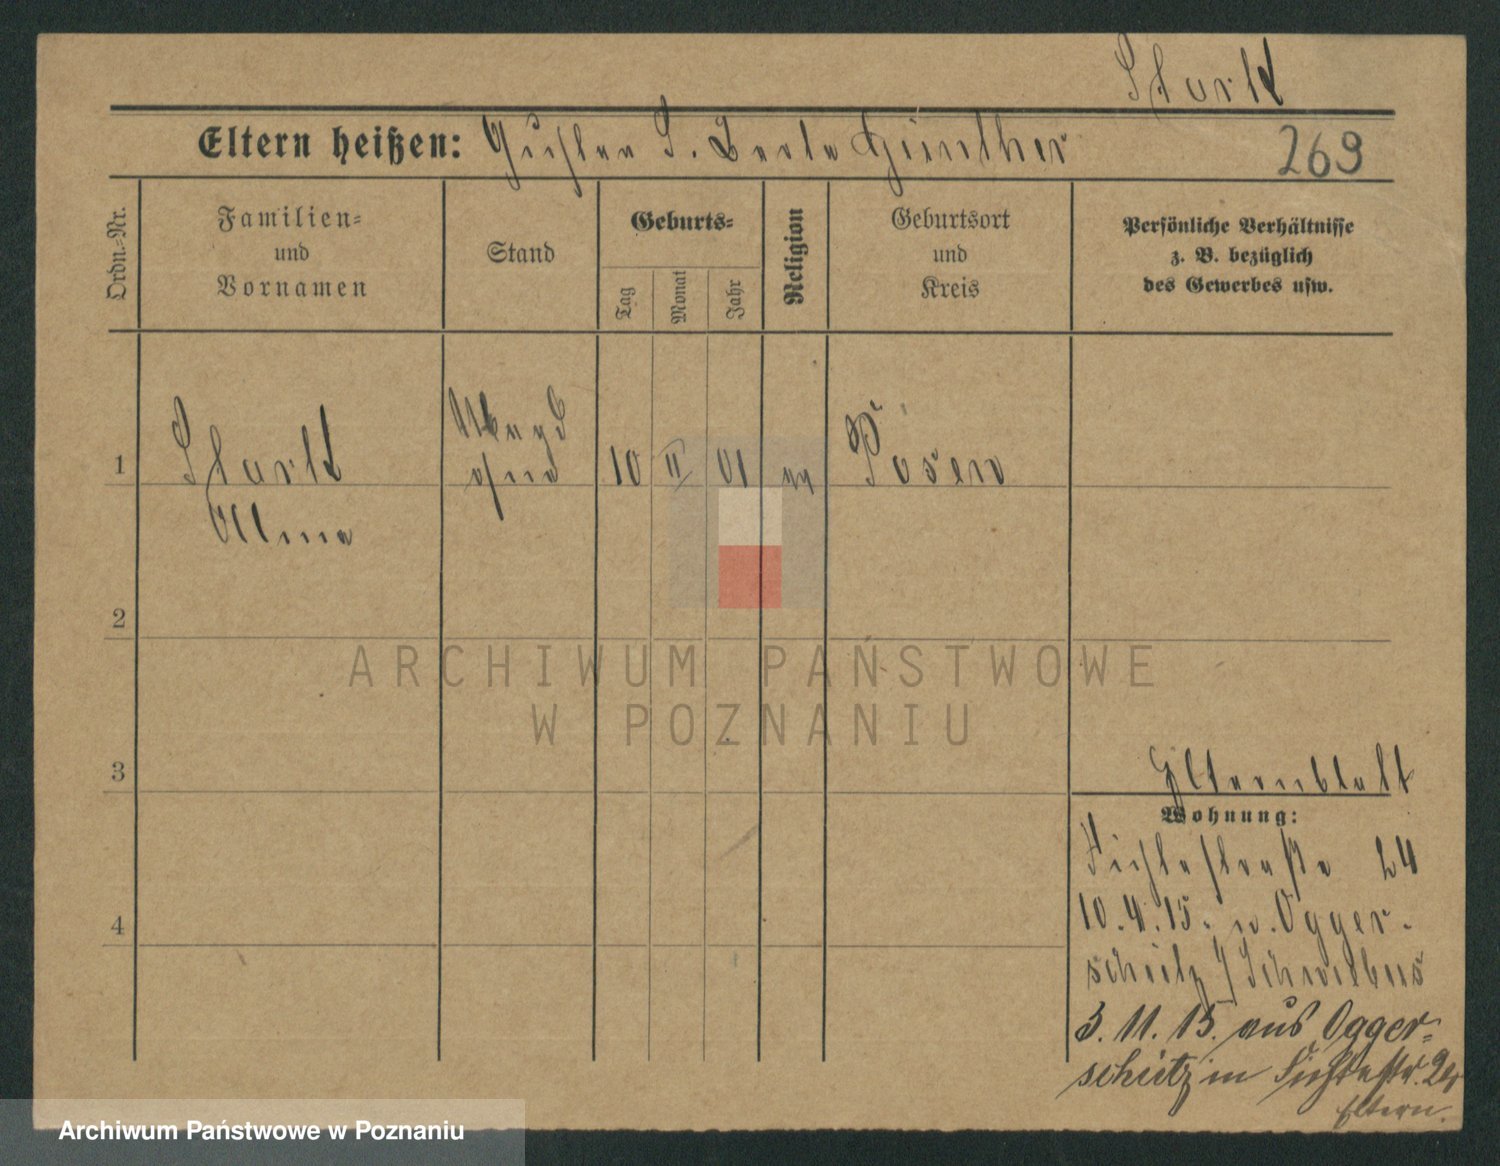 Stark
Eltern heißen: Günther
269
Ordn.-Nr.
Familien-
und
Vornamen
Stand
Geburts-
Tag
Monat
Jahr
Religion
Geburtsort
und
Kreis
Persönliche Verhältnisse
z. B. bezüglich
des Gewerbes usw.
1
Stark
10 II 01
Posen
2
ARCHIWUM PAŃSTWOWE
W POZNANIU
3
Elternblatt
Wohnung:
Fichtestraße 24
10.4.15. n. Ogger-
schütz / Schwiebus
3.11.15. aus Ogger-
schütz in Fichtestr. 24
Eltern.
4
Archiwum Państwowe w Poznaniu